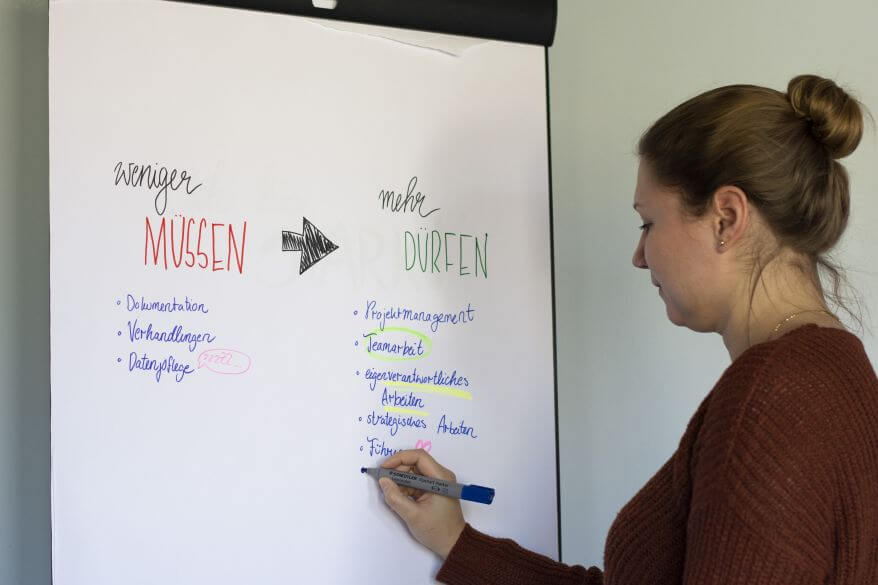 weniger
MÜSSEN
• Dokumentation
• Verhandlungen
• Datenpflege
mehr
DÜRFEN
• Projektmanagement
• Teamarbeit
• eigenverantwortliches
Arbeiten
• strategisches Arbeiten
STAEDTLER